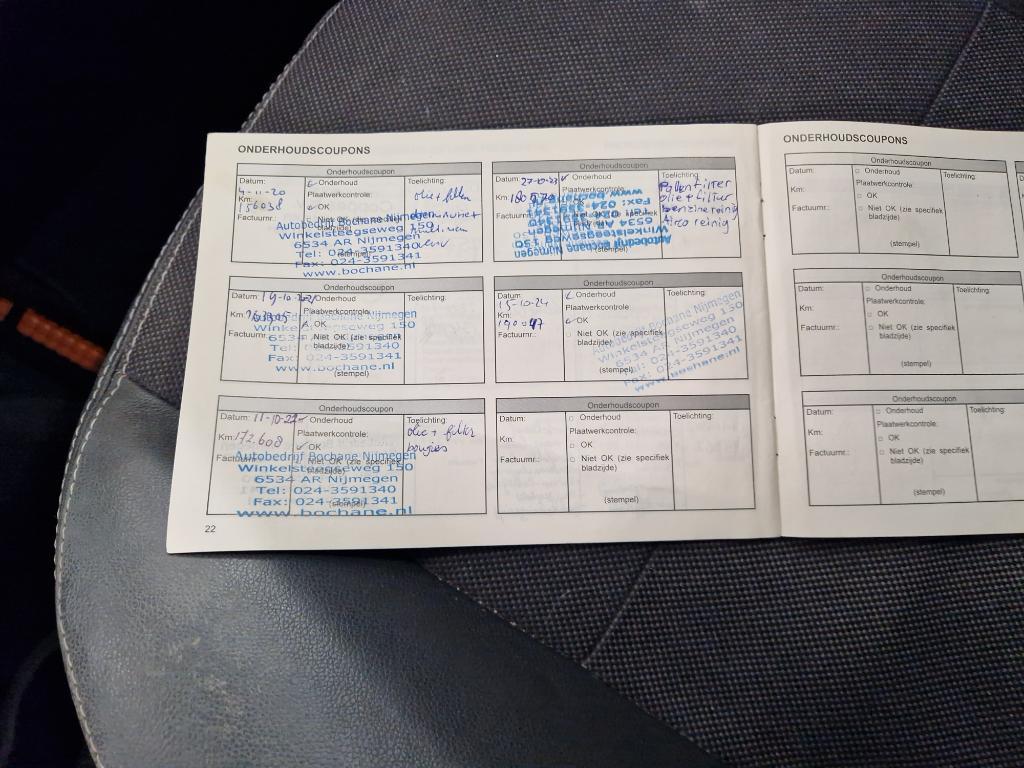 ONDERHOUDSCOUPONS
Onderhoudscoupon
Datum: 4-11-20
Km: 156038
Factuurnr.:
Onderhoud
Plaatwerkcontrole:
OK
Niet OK
Toelichting:
olie + filter
Autobedrijf Bochane Nijmegen
Winkelsteegseweg 150
6534 AR Nijmegen
Tel: 024-3591340
Fax: 024-3591341
www.bochane.nl
Onderhoudscoupon
Datum: 19-10-
Km:
Factuurnr.
Onderhoud
Plaatwerkcontrole:
OK
Niet OK (zie specifiek
bladzijde)
Toelichting:
Bochane Nijmegen
Winkelsteegseweg 150
6534 AR Nijmegen
Tel: 024-3591340
Fax: 024-3591341
www.bochane.nl
(stempel)
Onderhoudscoupon
Datum: 11-10-22
Km: 172.608
Onderhoud
Plaatwerkcontrole:
OK
Niet OK (zie specifiek
bladzijde)
Toelichting:
olie + filter
bougies
Autobedrijf Bochane Nijmegen
Winkelsteegseweg 150
6534 AR Nijmegen
Tel: 024-3591340
Fax: 024-3591341
www.bochane.nl
22
Onderhoudscoupon
Datum: 27-10-23
Km:
Factuurnr.:
Onderhoud
Plaatwerkcontrole:
OK
Toelichting:
Pollenfilter
olie + filter
benzine reinig
Airco reinig
Autobedrijf Bochane Nijmegen
Winkelsteegseweg 150
6534 AR Nijmegen
Fax: 024-3591341
www.bochane.nl
(stempel)
Onderhoudscoupon
Datum: 15-10-24
Km:
Factuurnr.:
Onderhoud
Plaatwerkcontrole:
OK
Niet OK (zie specifiek
bladzijde)
Toelichting:
Autobedrijf Bochane Nijmegen
Winkelsteegseweg 150
6534 AR Nijmegen
Tel: 024-3591340
Fax: 024-3591341
www.bochane.nl
(stempel)
Onderhoudscoupon
Datum:
Km:
Factuurnr.:
Onderhoud
Plaatwerkcontrole:
OK
Niet OK (zie specifiek
bladzijde)
(stempel)
Toelichting:
ONDERHOUDSCOUPONS
Onderhoudscoupon
Datum:
Km:
Factuurnr.:
Onderhoud
Plaatwerkcontrole:
OK
Niet OK (zie specifiek
bladzijde)
(stempel)
Toelichting:
Onderhoudscoupon
Datum:
Km:
Factuurnr.:
Onderhoud
Plaatwerkcontrole:
OK
Niet OK (zie specifiek
bladzijde)
(stempel)
Toelichting:
Onderhoudscoupon
Datum:
Km:
Factuurnr.:
Onderhoud
Plaatwerkcontrole:
OK
Niet OK (zie specifiek
bladzijde)
(stempel)
Toelichting: